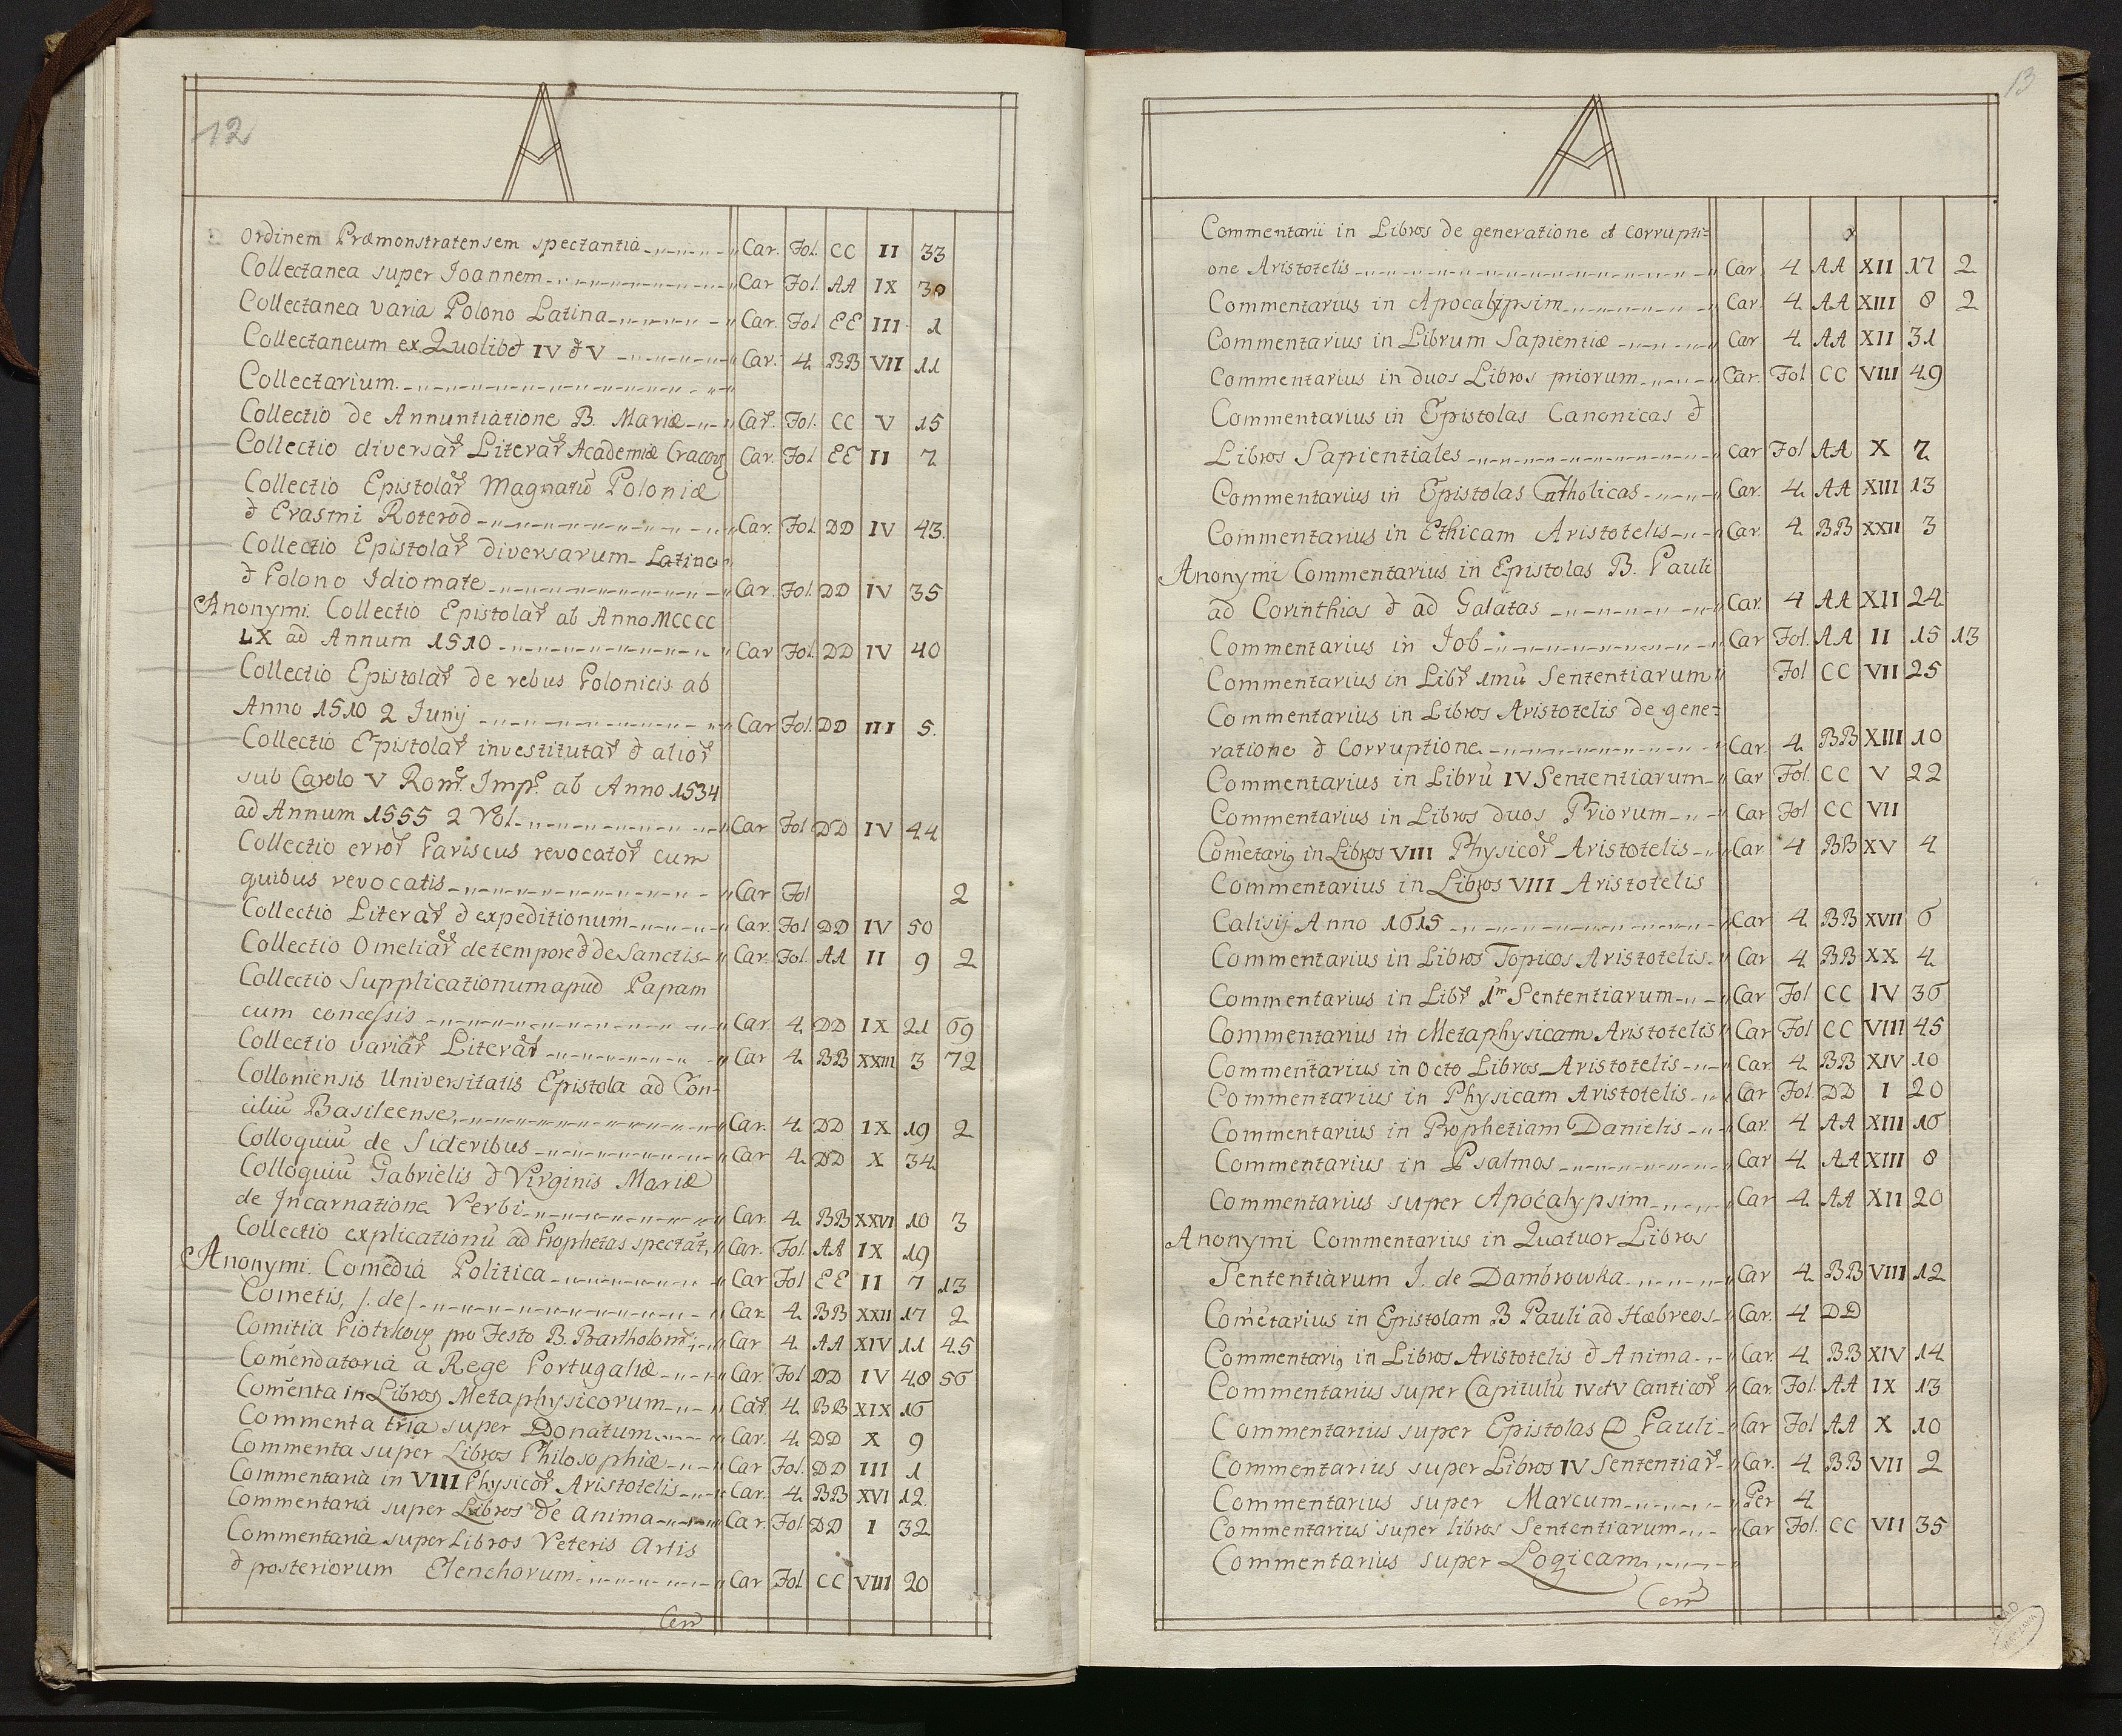 12
A
ordinem Præmonstratensem spectantia Car. Fol. CC II 33
Collectanea super Joannem Car Fol. AA IX 30
Collectanea varia Polono Latina Car. Fol EE III 1
Collectaneum ex Quolibet IV et V Car. 4 BB VII 11
Collectarium.
Collectio de Annuntiatione B. Mariæ Car. Fol. CC V 15
Collectio diversar Literar Academiæ Cracov Car. Fol EE II 7
Collectio Epistolar Magnatū Poloniæ
et Erasmi Roterod Car. Fol. DD IV 43.
Collectio Epistolar diversarum Latino
et Polono Idiomate Car. Fol. DD IV 35
Anonymi. Collectio Epistolar ab Anno MCCCC
LX ad Annum 1510 Car Fol. DD IV 40
Collectio Epistolar de rebus Polonicis ab
Anno 1510 2 Junij Car Fol. DD III 5.
Collectio Epistolar investitutar et alior
sub Carolo V Rom. Imp. ab Anno 1534
ad Annum 1555 2 Vol. Car Fol DD IV 44
Collectio error Pariscus revocator cum
quibus revocatis Car Fol 2
Collectio Literar et expeditionum Car. Fol DD IV 50
Collectio Omeliar de tempore et de Sanctis Car. Fol. AA II 9 2
Collectio Supplicationum apud Papam
cum concessis Car. 4 DD IX 21 69
Collectio variar Literar Car 4 BB XXIII 3 72
Colloniensis Universitatis Epistola ad Con-
ciliū Basileense, Car. 4 DD IX 19 2
Colloquiū de Sideribus Car 4 DD X 34
Colloquiū Gabrielis et Virginis Mariæ
de Incarnatione Verbi Car. 4 BB XXVI 10 3
Collectio explicationū ad Prophetas spectāt, Car. Fol. AA IX 19
Anonymi. Comedia Politica Car Fol EE II 7 13
Cometis, /.de/. Car. 4 BB XXII 17 2
Comitia Piotrkov pro Festo B. Bartholom; Car 4 AA XIV 11 45
Comēndatoria a Rege Portugaliæ Car. Fol DD IV 48 56
Comēnta in Libros Metaphysicorum Car. 4 BB XIX 16
Commenta tria super Donatum Car. 4 DD X 9
Commenta super Libros Philosophiæ Car Fol. DD III 1
Commentaria in VIII Physicor Aristotelis Car. 4 BB XVI 12.
Commentaria super Libros de Anima Car. Fol DD I 32
Commentaria super Libros Veteris Artis
et posteriorum Elenchorum Car Fol CC VIII 20
Com
13
A
Commentarii in Libros de generatione et corrupti=
one Aristotelis Car 4 AA XII 17 2
Commentarius in Apocalypsim Car. 4 AA XIII 8 2
Commentarius in Librum Sapientiæ Car 4 AA XII 31
Commentarius in duos Libros priorum Car. Fol CC VIII 49
Commentarius in Epistolas Canonicas et
Libros Sapientiales Car Fol AA X 7
Commentarius in Epistolas Catholicas Car. 4 AA XIII 13
Commentarius in Ethicam Aristotelis Car. 4 BB XXII 3
Anonymi Commentarius in Epistolas B. Pauli
ad Corinthios et ad Galatas Car. 4 AA XII 24
Commentarius in Job Car Fol. AA II 15 13
Commentarius in Libr 1mū Sententiarum Fol CC VII 25
Commentarius in Libros Aristotelis de gene=
ratione et Corruptione Car. 4 BB XIII 10
Commentarius in Librū IV Sententiarum Car Fol. CC V 22
Commentarius in Libros duos Priorum Car Fol CC VII
Com̄etari9 in Libros VIII Physicor Aristotelis Car 4 BB XV 4
Commentarius in Libros VIII Aristotelis
Calisij Anno 1615 Car 4 BB XVII 6
Commentarius in Libros Topicos Aristotelis Car 4 BB XX 4
Commentarius in Libr 1m Sententiarum Car Fol CC IV 36
Commentarius in Metaphysicam Aristotelis Car Fol CC VIII 45
Commentarius in octo Libros Aristotelis Car 4 BB XIV 10
Commentarius in Physicam Aristotelis Car Fol DD I 20
Commentarius in Prophetiam Danielis Car. 4 AA XIII 16
Commentarius in Psalmos Car 4 AA XIII 8
Commentarius super Apocalypsim Car 4 AA XII 20
Anonymi Commentarius in Quatuor Libros
Sententiarum J. de Dambrowka Car 4 BB VIII 12
Com̄etarius in Epistolam B Pauli ad Hæbreos Car. 4 DD
Commentari9 in Libros Aristotelis et Anima Car. 4 BB XIV 14
Commentarius super Capitulū IV et V Canticor Car. Fol. AA IX 13
Commentarius super Epistolas D Pauli Car Fol AA X 10
Commentarius super Libros IV Sententiar Car. 4 BB VII 2
Commentarius super Marcum Per 4
Commentarius super libros Sententiarum Car Fol. CC VII 35
Commentarius super Logicam
Com